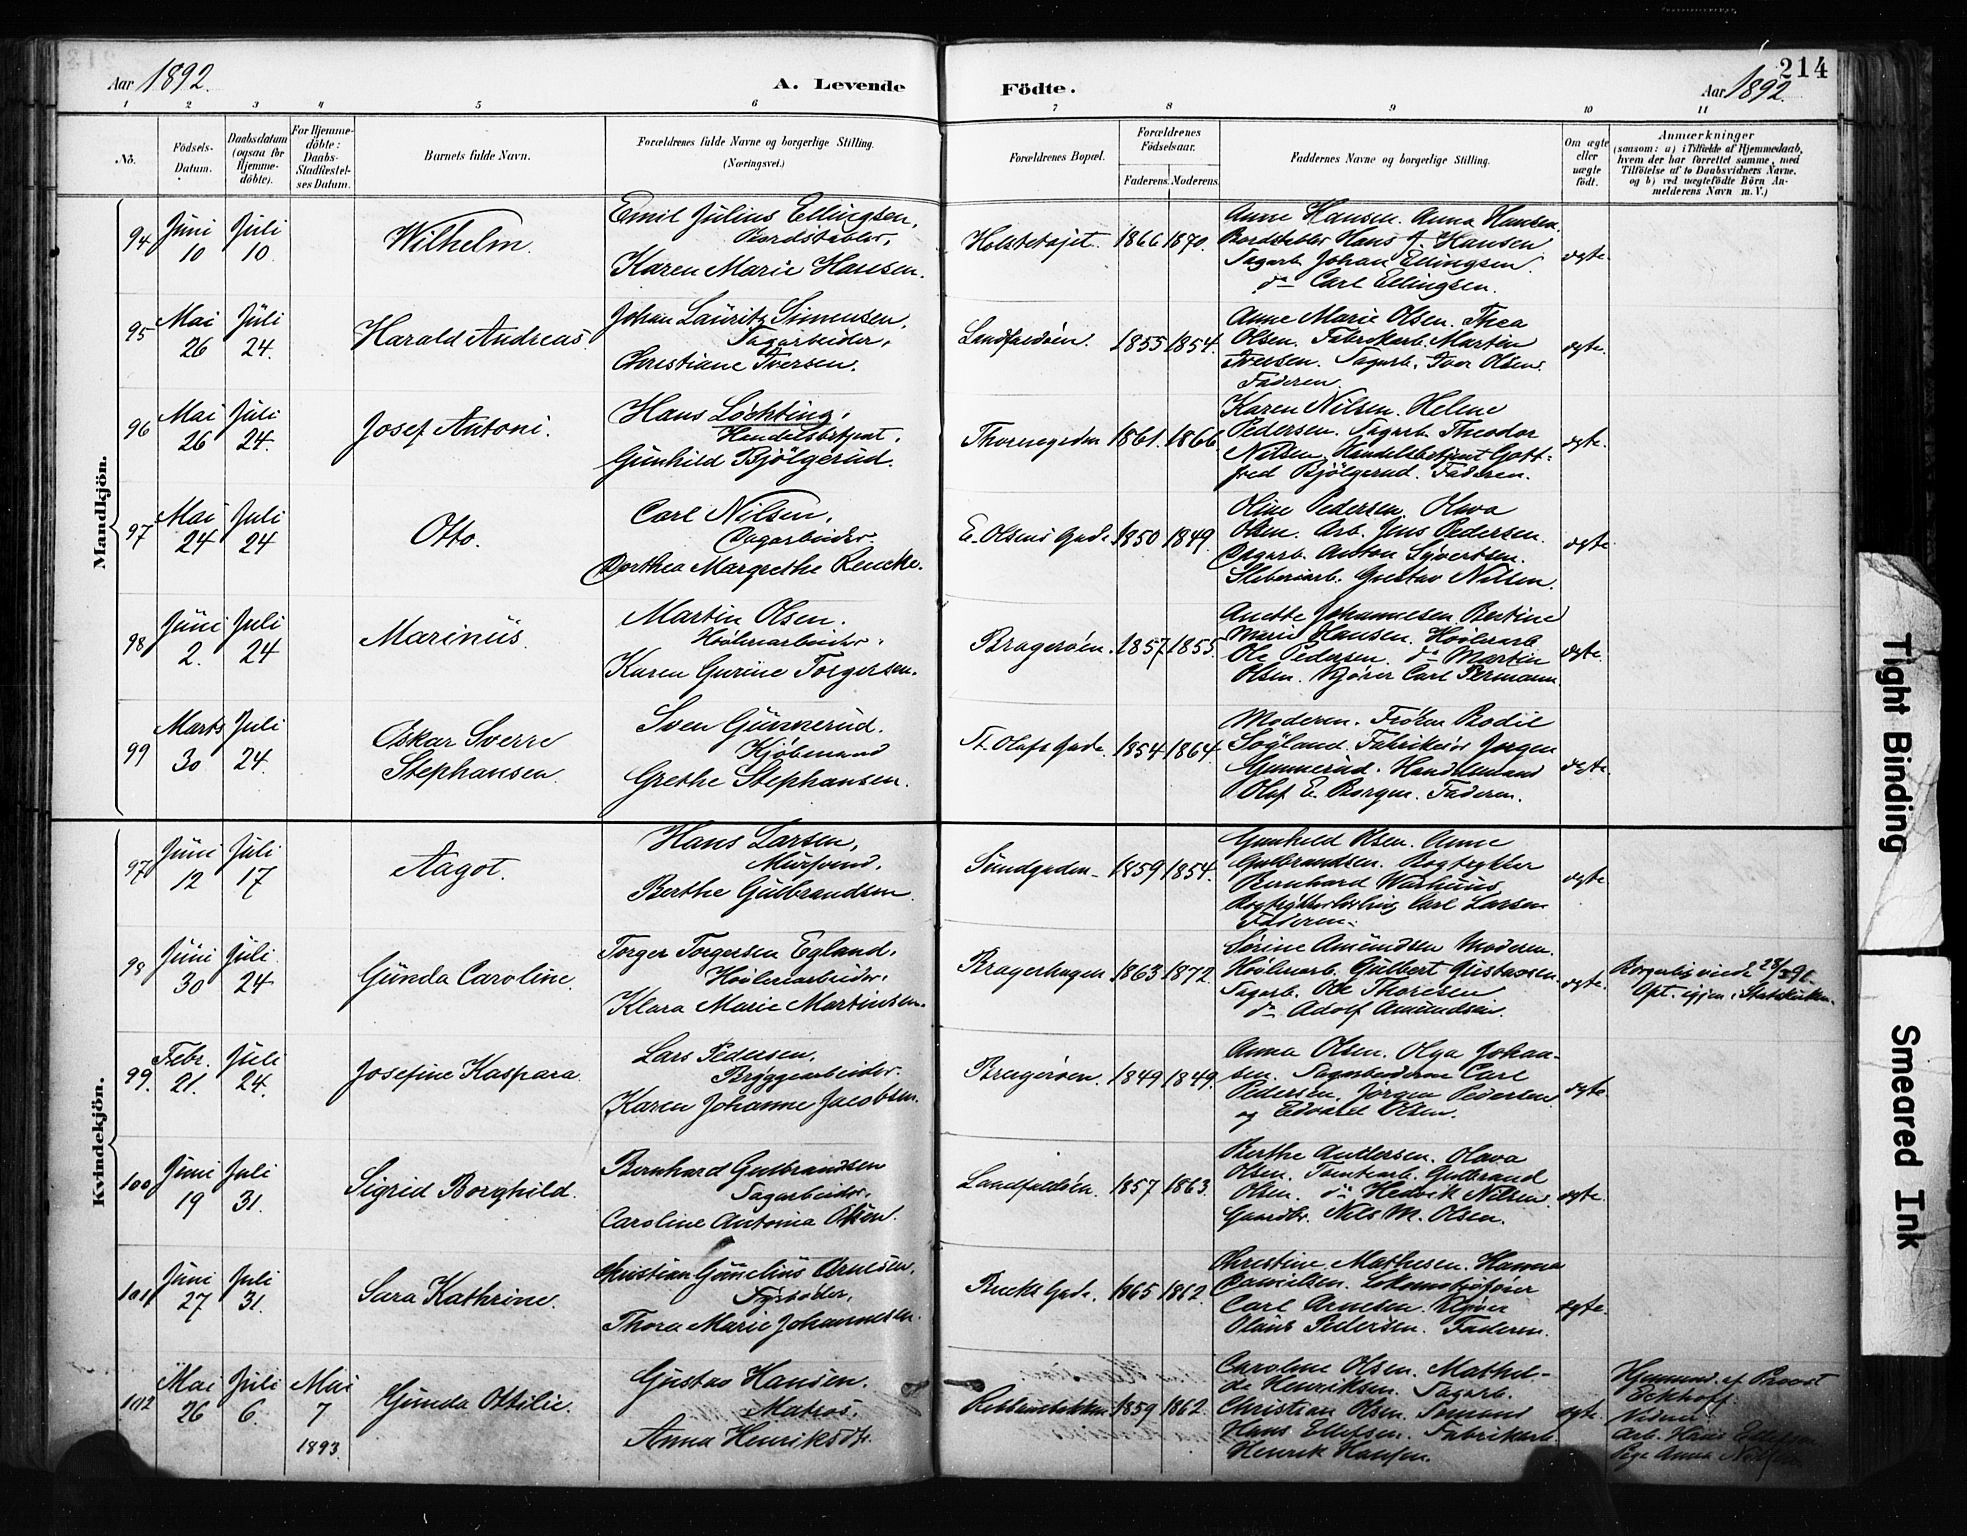 214
Aar 1892.
A. Levende
Födte.
Aar 1892.
1 2 3 4 5 6 7 8 9 10 11
No.
Födsels-
Datum.
Daabsdatum
(ogsaa for
Hjemme-
döbte).
For Hjemme-
döbte:
Daabs-
Stadfæstel-
ses Datum.
Barnets fulde Navn.
Forældrenes fulde Navne og borgerlige Stilling.
(Næringsvei.)
Forældrenes Bopæl.
Forældrenes
Födselsaar.
Faderens. Moderens.
Faddernes Navne og borgerlige Stilling.
Om ægte
eller
uægte
födt.
Anmærkninger
(saasom: a) i Tilfælde af Hjemmedaab,
hvem der har forrettet samme, med
Tilföielse af to Daabsvidners Navne,
og b) ved uægtefödte Börn An-
melderens Navn m. V.)
Mandkjön.
94 Juni 10 Juli 10.
Wilhelm.
Emil Julius Ellingsen,
Bordstabler,
Karen Marie Hansen.
1866 1870.
Anne Hansen. Anna Hansen.
Bordstabler Hans J. Hansen
Sagarb. Johan Ellingsen.
do Carl Ellingsen.
ægte.
95 Mai 26 Juli 24.
Harald Andreas.
Johan Lauritz Simensen,
Sagarbeider,
Christiane Iversen.
Landfaldøen. 1855 1854.
Anne Marie Olsen. Thea
Olsen. Fabrikarb. Martin
Iversen. Sagarb. Iver Olsen.
Faderen.
ægte.
96 Mai 26 Juli 24.
Josef Antoni.
Hans Løchting,
Handelsbetjent,
Gunhild Bjölgerud.
Thornegaden 1861. 1866
Karen Nilsen. Helene
Pedersen. Sagarb. Theodor
Nilsen. Handelsbetjent Gott-
fred Bjölgerud. Faderen.
ægte.
97 Mai 24 Juli 24
Otto.
Carl Nilsen,
Dagarbeider.
Dorthea Margrethe Rencke.
E. Olsens Gade 1850 1849.
Oline Pedersen. Olava
Olsen. Arb. Jens Pedersen.
Dagarb. Anton Syvertsen.
Sliberiarb. Gustav Nilsen.
ægte.
98 Juni 2. Juli 24
Marinus.
Martin Olsen.
Høvleriarbeider.
Karen Gurine Torgersen.
Bragerøen. 1857 1855.
Anette Johannesen. Bertine
Marie Hansen. Høvleriarb.
Ole Pedersen. do Martin
Olsen. Kjører Carl Permann
ægte.
99 Marts 30 Juli 24.
Oskar Sverre
Stephansen.
Sven Gunnerud.
Kjøbmand
Grethe Stephansen.
St. Olafs Gade. 1854 1864.
Moderen. Frøken Bodil
Søyland. Fabrikeier Jørgen
Gunnerud. Handelsmand
Olaf E. Borgen. Faderen.
ægte.
Kvindekjön.
97 Juni 12 Juli 17
Aagot.
Hans Larsen,
Mursvend,
Berthe Gulbrandsen
Sundgaden 1859 1854.
Gunhild Olsen. Anne
Gulbrandsen. Bogtrykker
Bernhard
Carl Larsen
Faderen.
ægte
98 Juni 30 Juli 24
Gunda Caroline.
Torger Torgersen Egland.
Høvleriarbeider.
Klara Marie Martinsen.
Bragerhagen 1863 1872.
Sørine Amundsen. Moderen.
Høvleriarb. Gulbert Gustavsen
Sagarb. Ole Thoresen
do Adolf Amundsen.
ægte.
Borgerlig viede
Opt. igjen i Statskirken.
99. Febr. 21. Juli 24.
Josefine Kaspara.
Lars Pedersen,
Bryggearbeider.
Karen Johanne Jacobsen.
Bragerøen. 1849 1849.
Anna Olsen. Olga Johan-
sen. Sagarbeiderne Carl
Pedersen, Jørgen Pedersen
og Edvard Olsen.
ægte.
100 Juni 19 Juli 31.
Sigrid Borghild.
Bernhard Gulbrandsen
Sagarbeider.
Caroline Antonia Olsen.
Landfaldøen. 1857 1863.
Berthe Andersen. Olava
Olsen. Tomtearb. Gulbrand
Olsen. do Hedvik Nilsen.
Gaardbr. Nils M. Olsen.
ægte.
101 Juni 27 Juli 31.
Sara Kathrine.
Kristian Cornelius Arnesen,
Fyrbøder,
Thora Marie Johannesen.
Bucks Gade. 1865 1862.
Christine Mathesen. Hanna
Danielsen. Lokomotivfører
Carl Arnesen. Kjører
Olaus Pedersen. Faderen.
ægte.
102 Mai 26 Juli 6. Mai 7 1893.
Gunda Ottilie.
Gustav Hansen.
Matros.
Anna Henriksdtr.
1859 1862.
Caroline Olsen. Mathil-
de Henriksen. Sagarb.
Christian Olsen. Sømand
Hans Ellefsen. Fabrikarb.
Henrik Hansen.
ægte.
Hjemmed. af Provst
Eckhoff.
Vidner:
Arb. Hans Ellefsen
Pige Anna Nilsen
Tight Binding
Smeared Ink